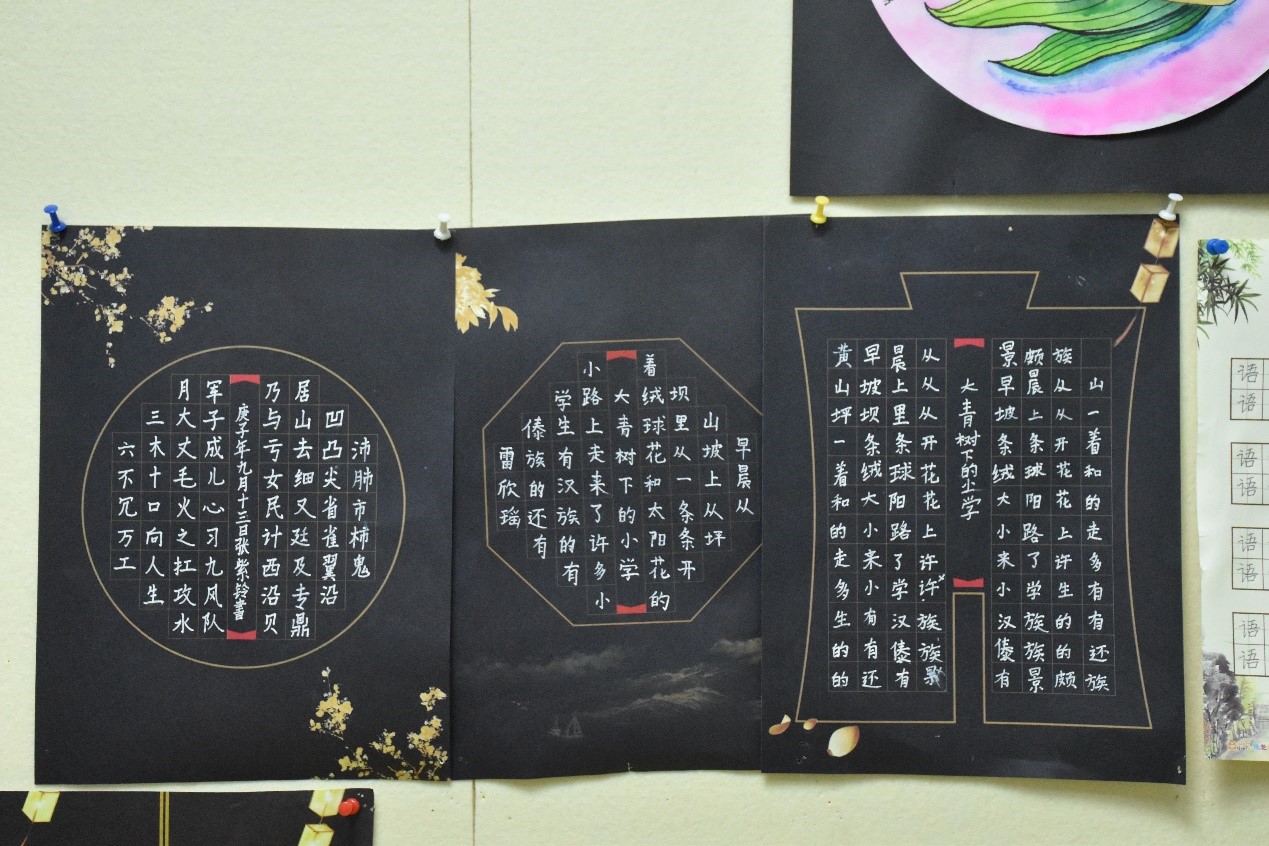 沛肺市柿鬼
凹凸尖省雀翼沿
居山去细又廷及专鼎
乃与亏女民计西沿贝
庚子年九月十三日张紫铃書
军子成儿心习九风队
月大丈毛火之扛攻水
三木十口向人生
六不冗万工
早晨从
山坡上从坪
坝里从一条条开
着绒球花和太阳花的
大青树下的小学
小路上走来了许多小
学生有汉族的有
傣族的还有
雷欣瑶
山一着和的走多有有还族
族从从开花花上许生的的颇
颇晨上条球阳路了学族族景
景早坡条绒大小来小汉傣有
大青树下的小学
从从从开花花上许许族族
晨上里条球阳路了学汉傣有
早坡坝条绒大小来小有有还
黄山坪一着和的走多生的的
语
语
语
语
语
语
语
语